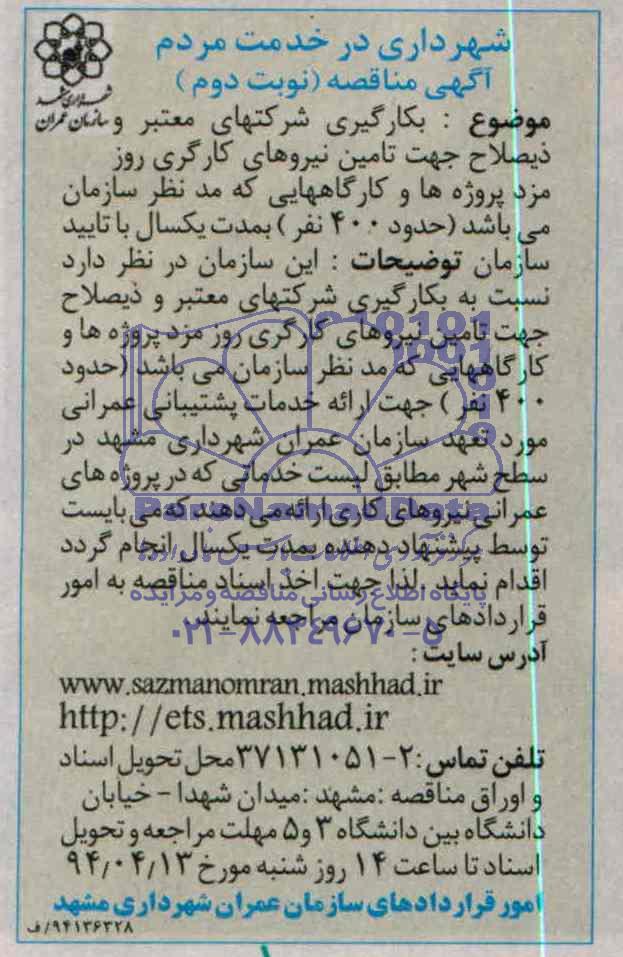 شهرداری در خدمت مردم
آگهی مناقصه (نوبت دوم)
شهرداری مشهد
سازمان عمران
موضوع : بکارگیری شرکتهای معتبر و
ذیصلاح جهت تامین نیروهای کارگری روز
مزد پروژه ها و کارگاههایی که مد نظر سازمان
می باشد (حدود ۴۰۰ نفر) بمدت یکسال با تایید
سازمان توضیحات : این سازمان در نظر دارد
نسبت به بکارگیری شرکتهای معتبر و ذیصلاح
جهت تامین نیروهای کارگری روز مزد پروژه ها و
کارگاههایی که مد نظر سازمان می باشد (حدود
۴۰۰ نفر) جهت ارائه خدمات پشتیبانی عمرانی
مورد تعهد سازمان عمران شهرداری مشهد در
سطح شهر مطابق لیست خدماتی که در پروژه های
عمرانی نیروهای کاری ارائه می دهند که می بایست
توسط پیشنهاد دهنده بمدت یکسال انجام گردد
اقدام نماید .لذا جهت اخذ اسناد مناقصه به امور
قراردادهای سازمان مراجعه نمایند.
آدرس سایت :
www.sazmanomran.mashhad.ir
http://ets.mashhad.ir
تلفن تماس :۲-۳۷۱۳۱۰۵۱ محل تحویل اسناد
و اوراق مناقصه :مشهد :میدان شهدا - خیابان
دانشگاه بین دانشگاه ۳ و ۵ مهلت مراجعه و تحویل
اسناد تا ساعت ۱۴ روز شنبه مورخ ۹۴/۰۴/۱۳
امور قراردادهای سازمان عمران شهرداری مشهد
۹۴۱۳۶۳۲۸/ف
ParsNamadData
پایگاه اطلاع رسانی مناقصه و مزایده
۰۲۱-۸۸۳۴۹۶۷۰-۵